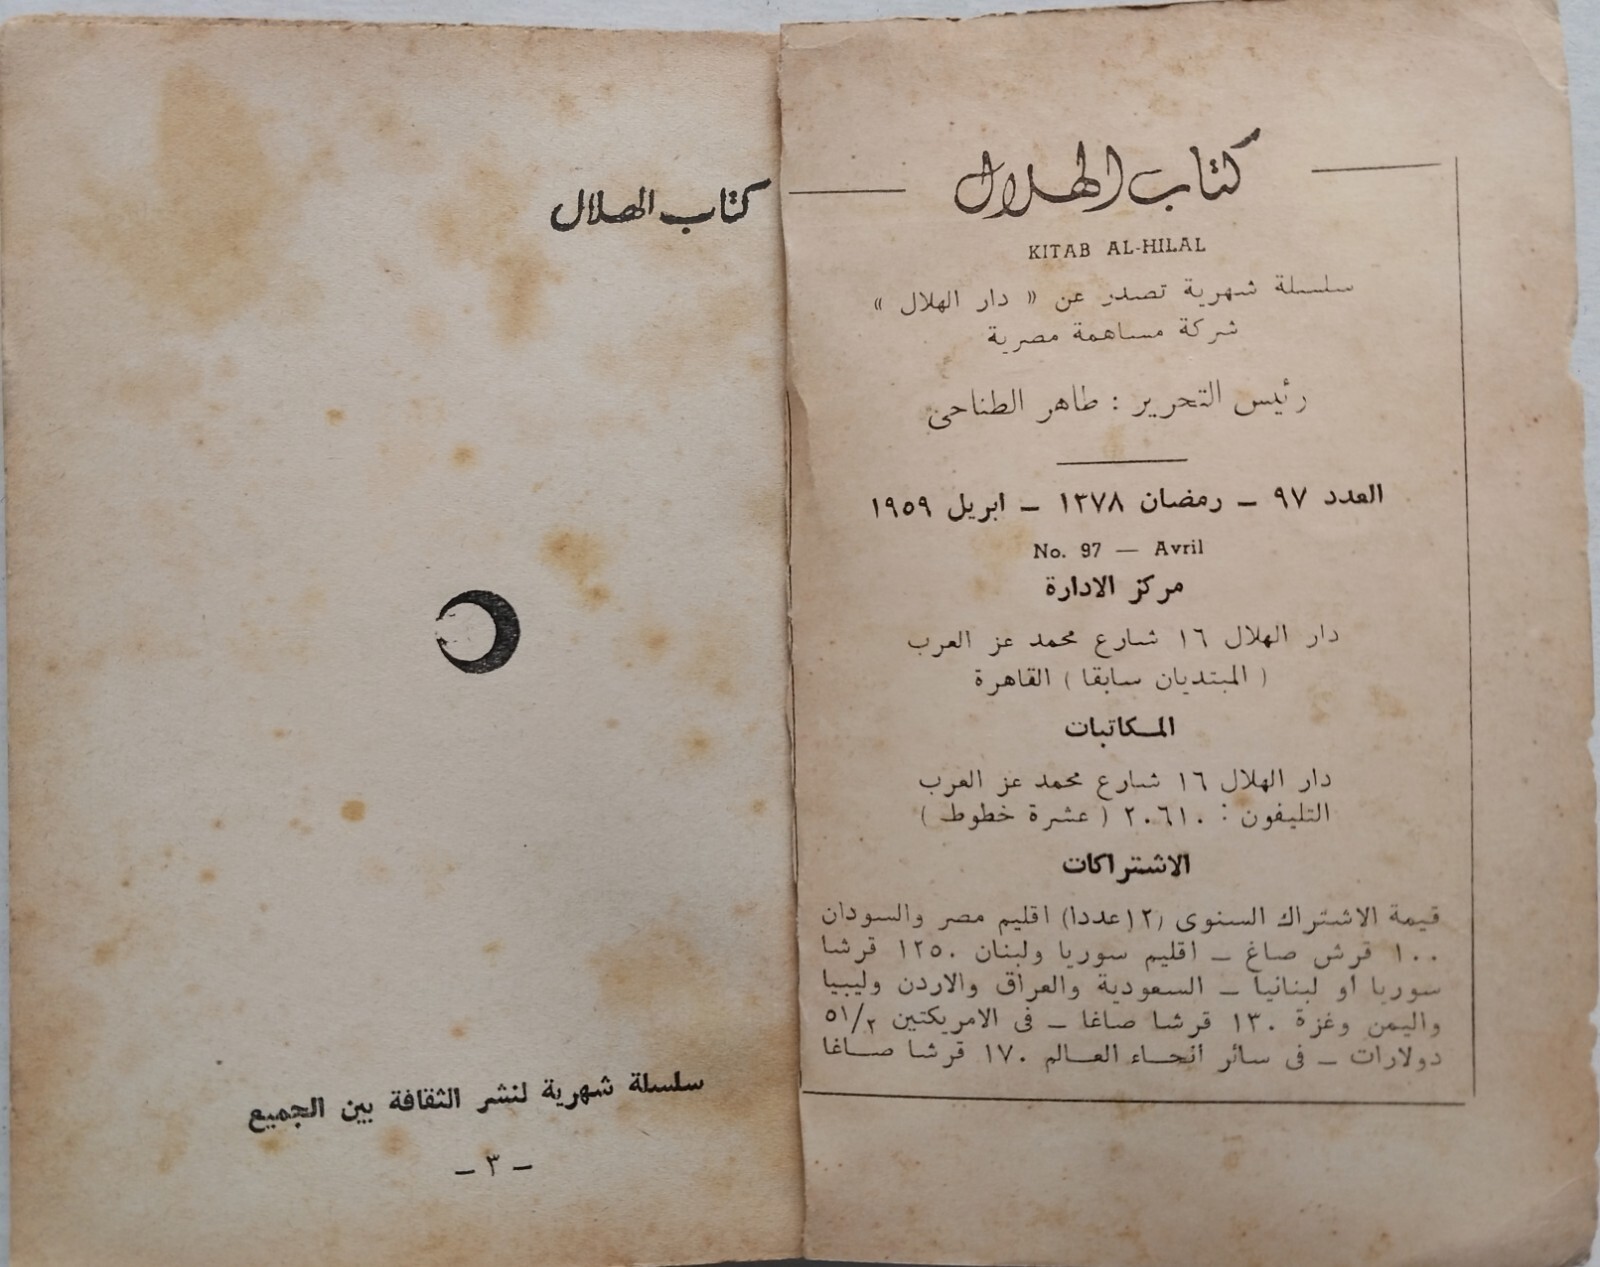 كتاب الهلال
KITAB AL-HILAL
سلسلة شهرية تصدر عن « دار الهلال »
شركة مساهمة مصرية
رئيس التحرير : طاهر الطناحى
العدد ٩٧ ــ رمضان ١٣٧٨ ــ ابريل ١٩٥٩
No. 97 — Avril
مركز الادارة
دار الهلال ١٦ شارع محمد عز العرب
( المبتديان سابقا ) القاهرة
المكاتبات
دار الهلال ١٦ شارع محمد عز العرب
التليفون : ٢٠٦١٠ ( عشرة خطوط )
الاشتراكات
قيمة الاشتراك السنوى (١٢ عددا) اقليم مصر والسودان
١٠٠ قرش صاغ ــ اقليم سوريا ولبنان ١٢٥٠ قرشا
سوريا أو لبنانيا ــ السعودية والعراق والاردن وليبيا
واليمن وغزة ١٣٠ قرشا صاغا ــ فى الامريكتين ٥١/٢
دولارات ــ فى سائر انحاء العالم ١٧٠ قرشا صاغا
كتاب الهلال
سلسلة شهرية لنشر الثقافة بين الجميع
ــ ٣ ــ